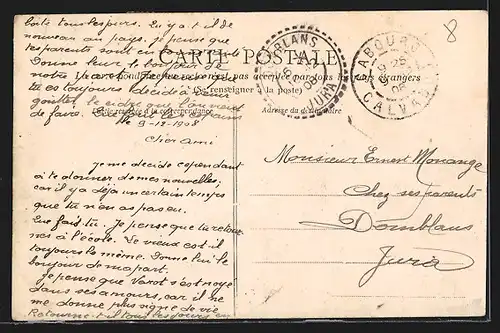 boite tous les jours. Qu'y a-t-il de
nouveau au pays. Je pense que
tes parents sont en bonne santé
Donne leur le bonjour de
notre part
tu es toujours décidé à venir
goûter le cidre que l'on vient
de faire.
CARTE POSTALE
La correspondance au recto n'est pas acceptée par tous les pays étrangers
(Se renseigner à la poste)
Partie réservée à la correspondance
Adresse du destinataire
8
DOMBLANS
JURA
CALVADOS
le 9-12-1908
Cher ami
Je me décide cependant
à te donner de mes nouvelles,
car il y a déjà un certain temps
que tu n'en as pas eu.
Que fais tu. Je pense que tu retour
nes à l'école. Le vieux est-il
toujours le même. Donne lui le
bonjour de ma part.
Je pense que Varot s'est noyé
dans ses amours, car il ne
me donne plus signe de vie
Retourne-t-il tous les jours en
Monsieur Ernest Monange
Chez ses parents
Domblans
Jura